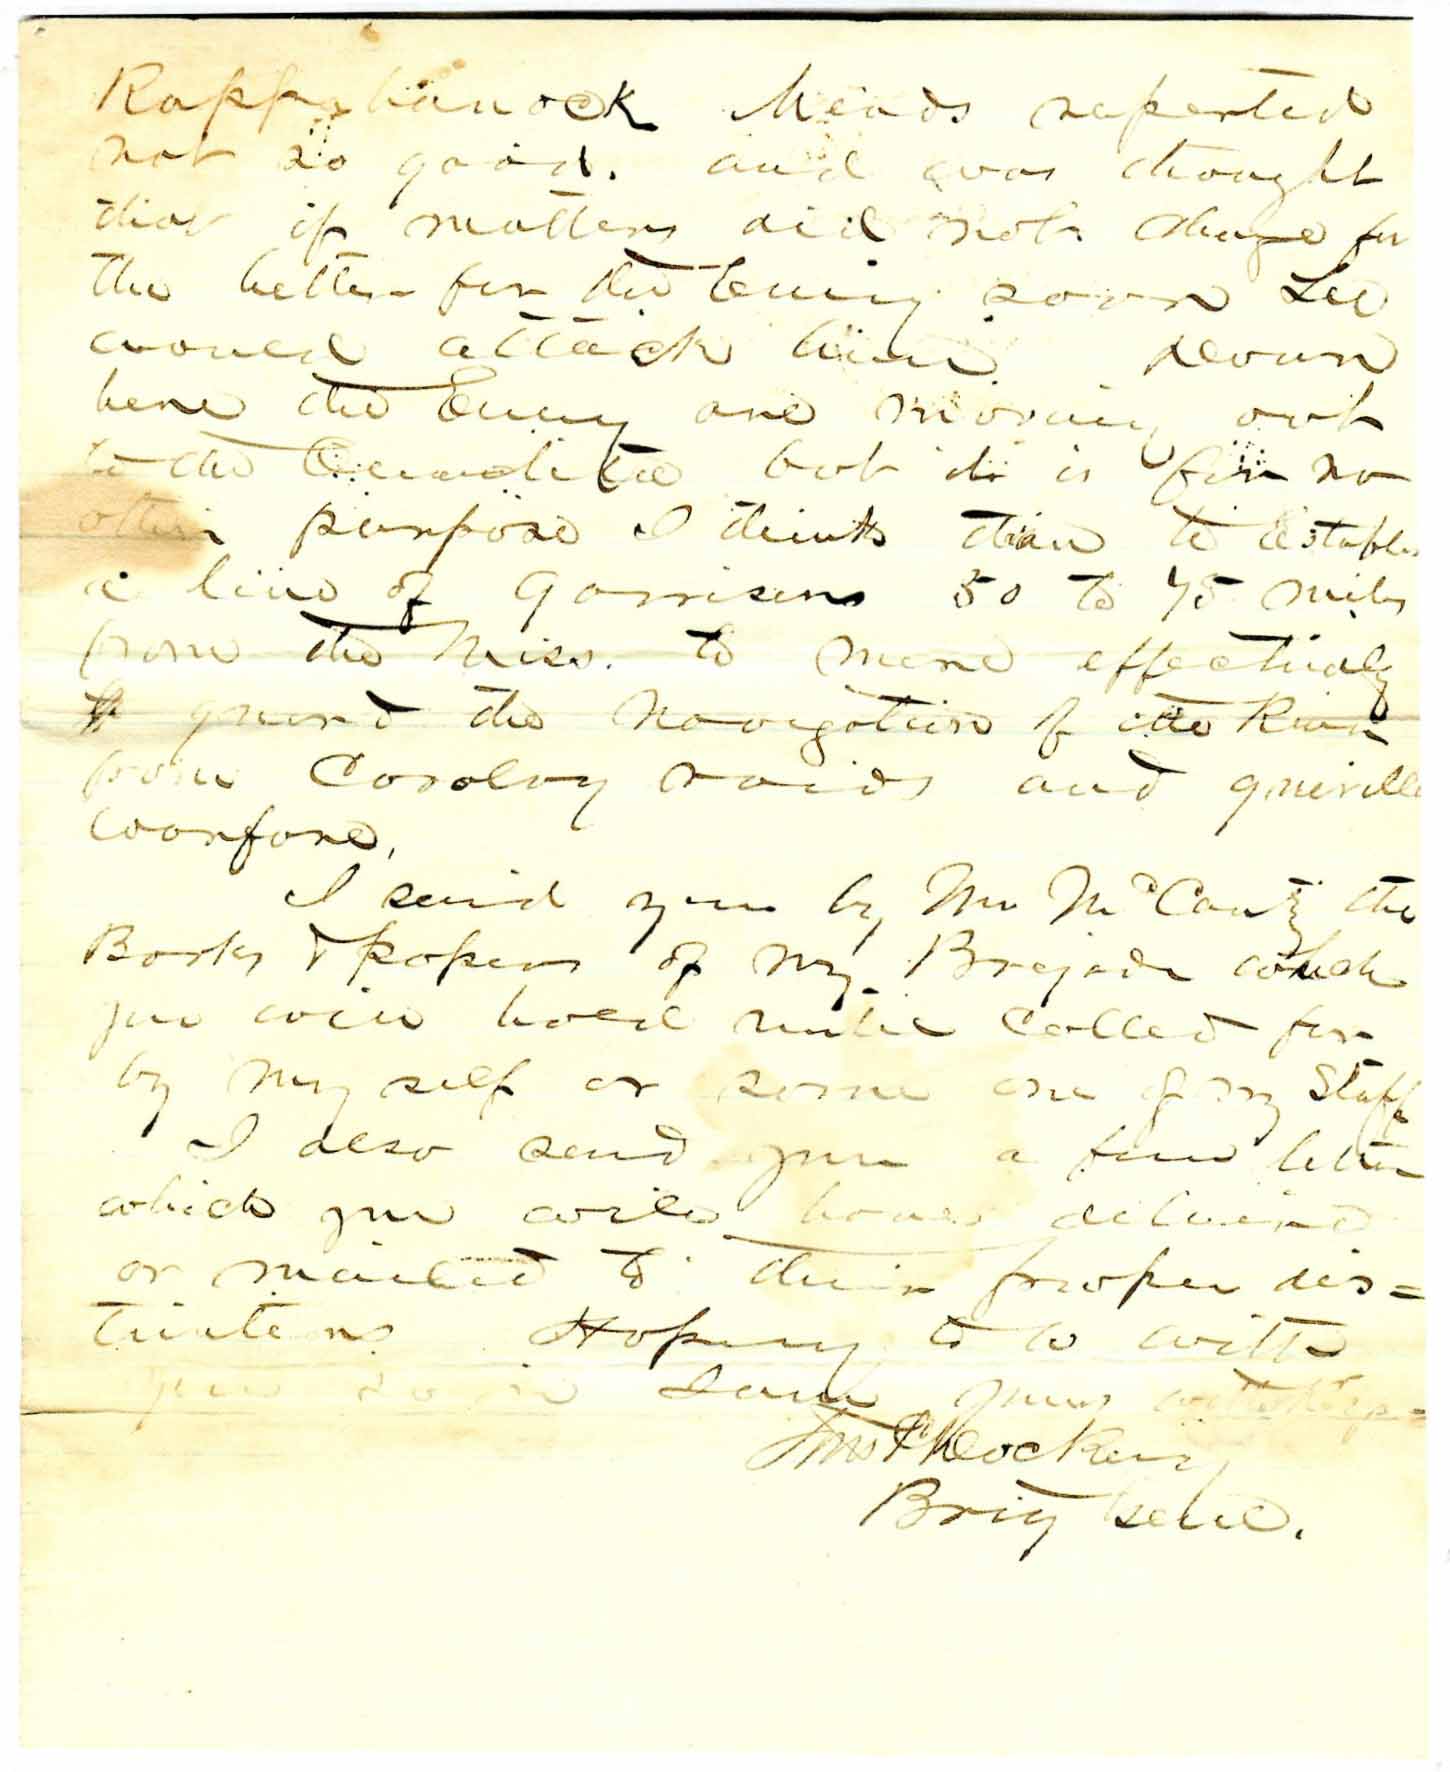 Rappahanock Meads reported
not so good. and was thought
that if matters did not change for
the better for the Enemy soon Lee
would attack him down
here the Enemy are moving out
to the but it is for no
other purpose I think than to establis
a line of Garrisons 50 to 75 miles
from the Miss. to more effectually
guard the Navigation of the River
from Cavalry raids and guerilla
warfare,
I send you by Mr McCanty the
Books & papers of my Brigade which
you will hold until Called for
by my self or some one of my Staff
I also send you a few letters
which you will have delivered
or mailed to their proper dis=
tinations Hoping to be with
you soon I am yours
Tho P Dockery
Brig Genl.